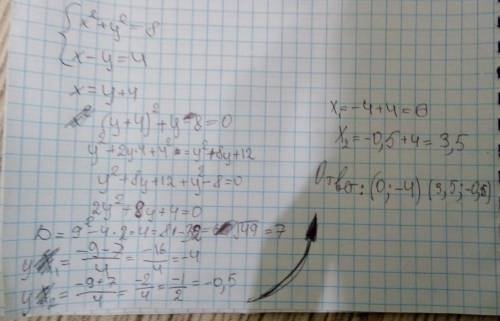 { x²+y²=8
x-y=4
x=y+4
(y+4)²+y-8=0
y²+2y·4+4²=y²+8y+12
y²+8y+12+y²-8=0
2y²+9y+4=0
D=9²-4·2·4=81-32=√49=7
y₁=(-9-7)/4=-16/4=-4
y₂=(-9+7)/4=-2/4=-1/2=-0,5
x₁=-4+4=0
x₂=-0,5+4=3,5
Ответ: (0;-4) (3,5;-0,5)